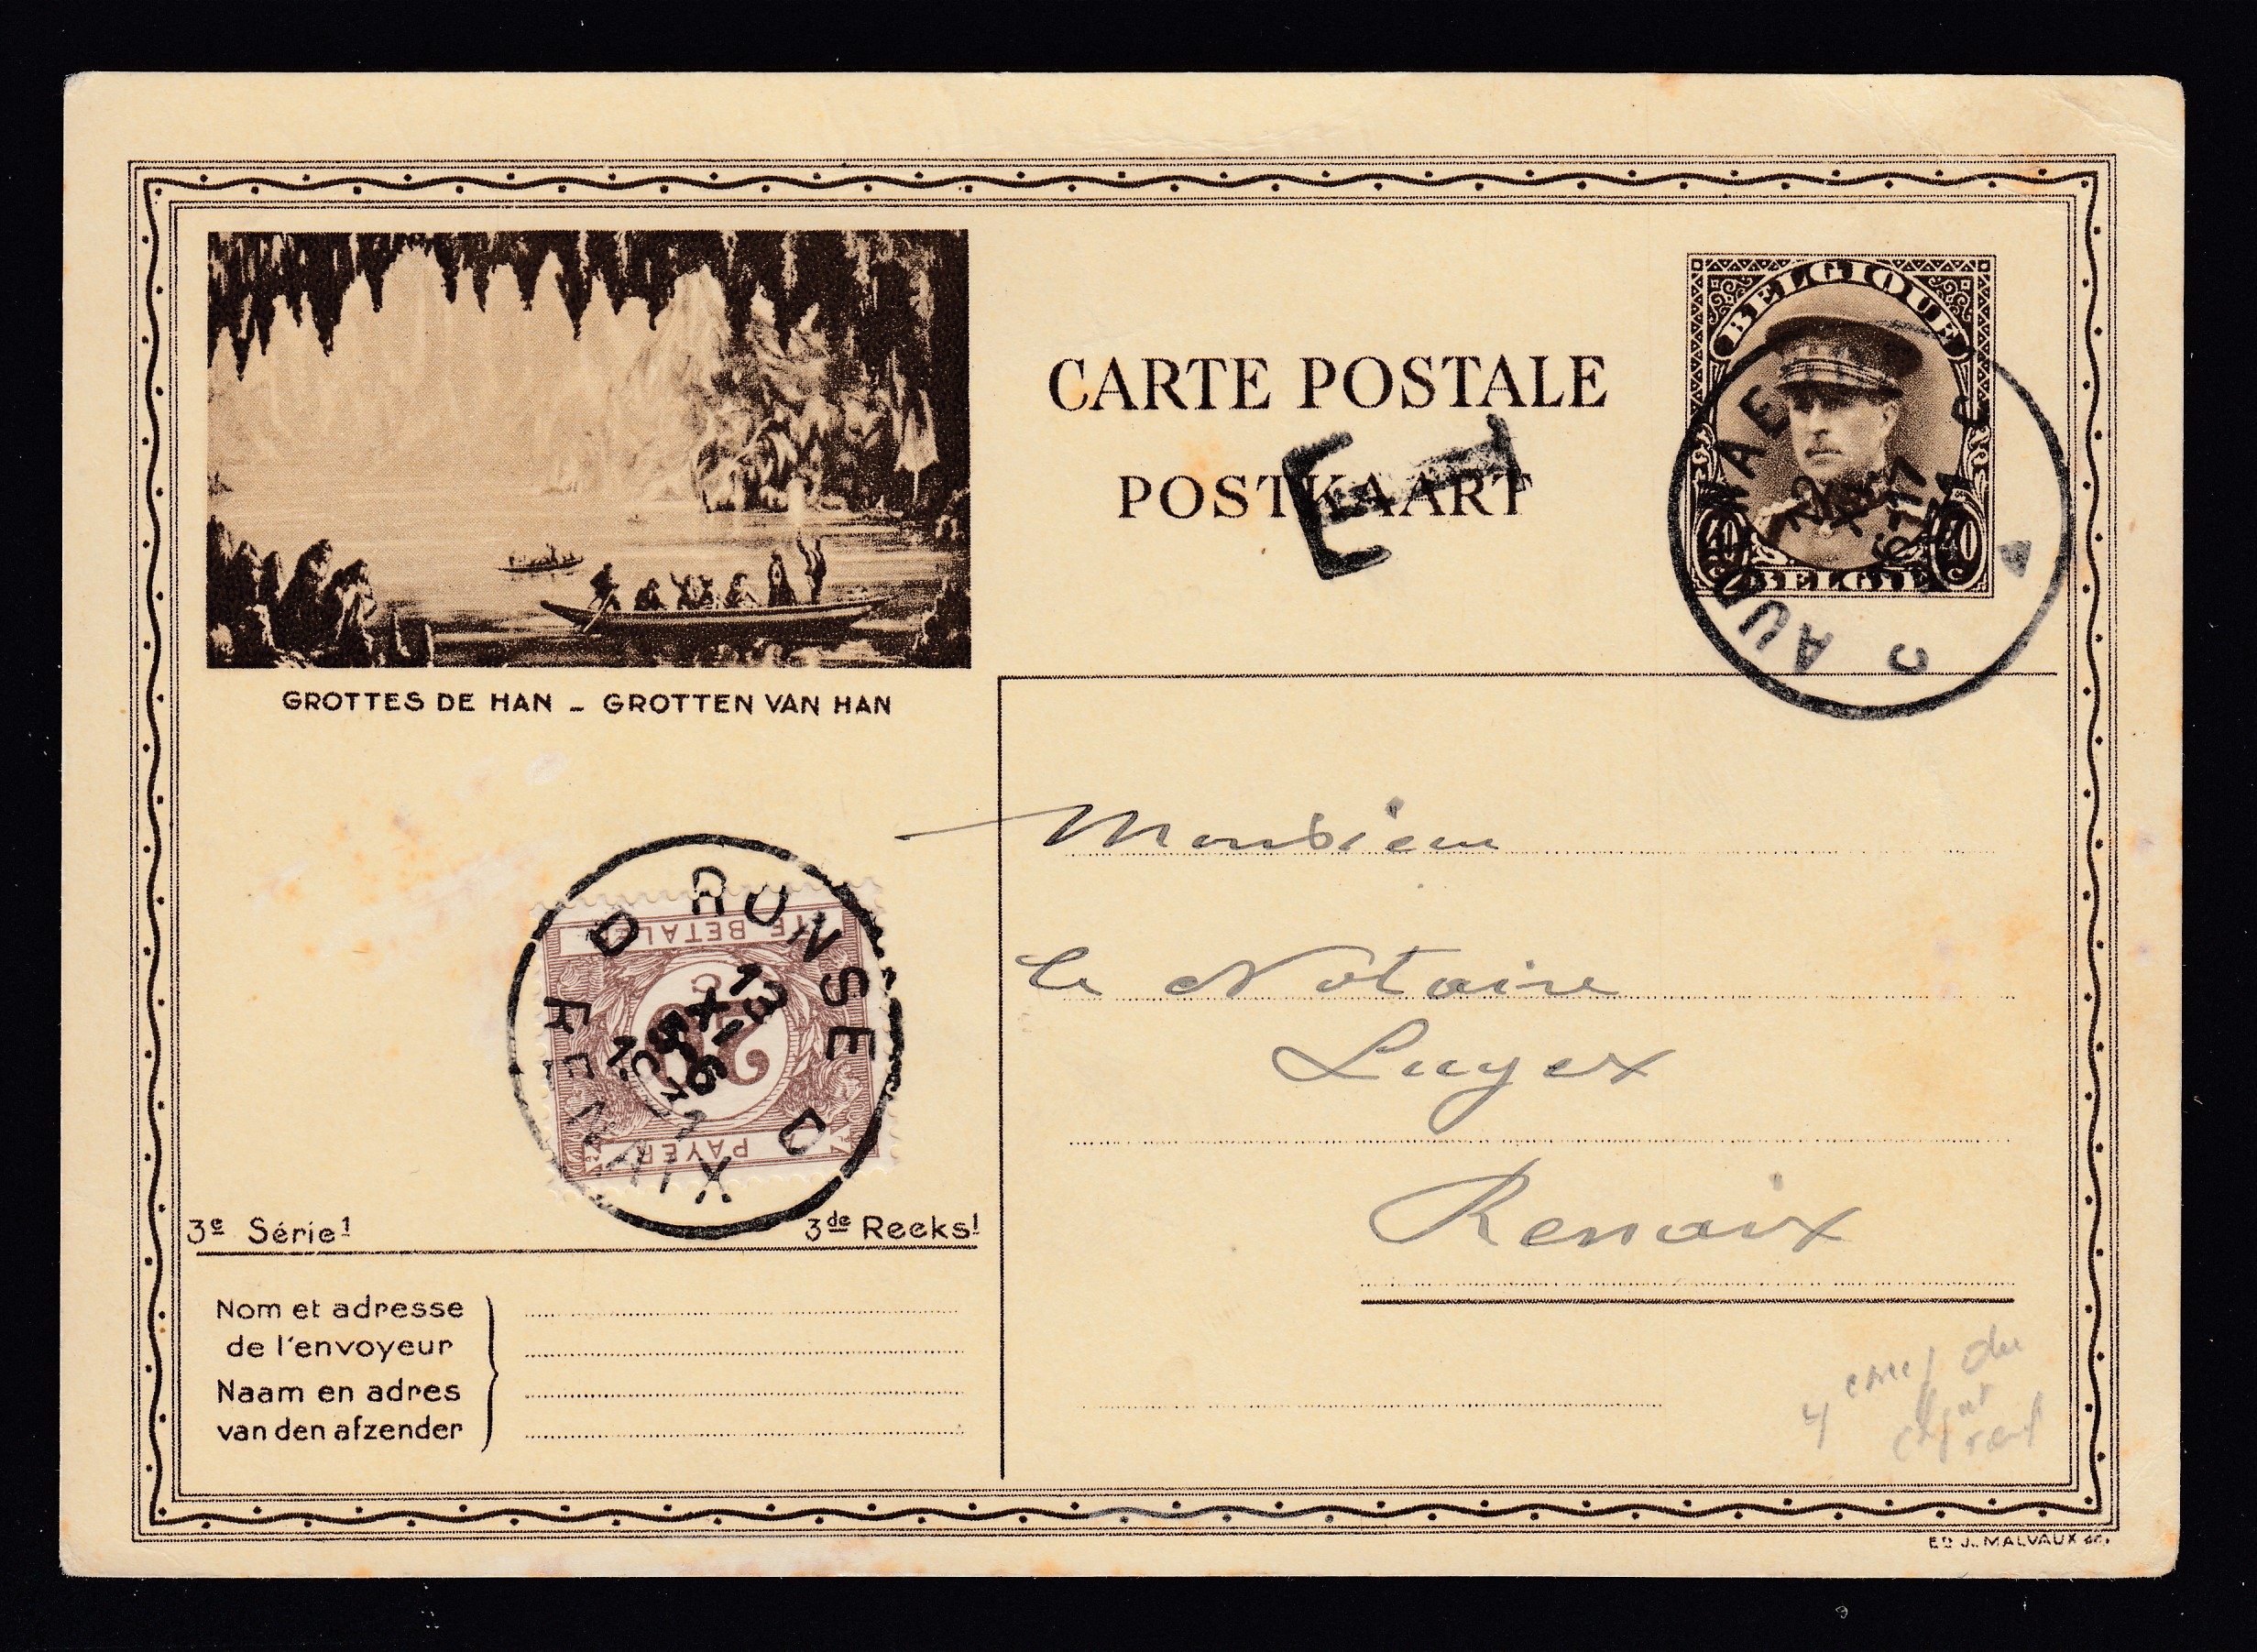 BELGIQUE
CARTE POSTALE
POSTKAART
T
40 40
BELGIË
GROTTES DE HAN – GROTTEN VAN HAN
Monsieur
le Notaire
Luyex
Renaix
RONSE
D D
13
RENAIX
TE BETALEN
20
A PAYER
3e Série 1
3de Reeks 1
Nom et adresse
de l'envoyeur
Naam en adres
van den afzender
4 du
ED J. MALVAUX